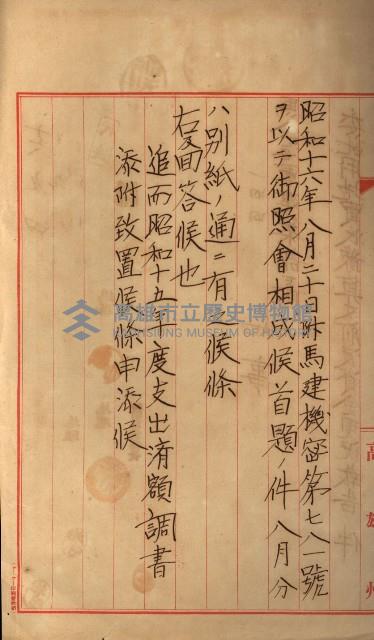 昭和十六年八月二十日附馬建機密第七八一號
ヲ以テ御照會相成候首題ノ件八月分
ハ別紙ノ通ニ有之候條
右回答候也
追而昭和十五年度支出済額調書
添附致置候條申添候
高雄州
高雄市立歷史博物館
KAOHSIUNG MUSEUM OF HISTORY